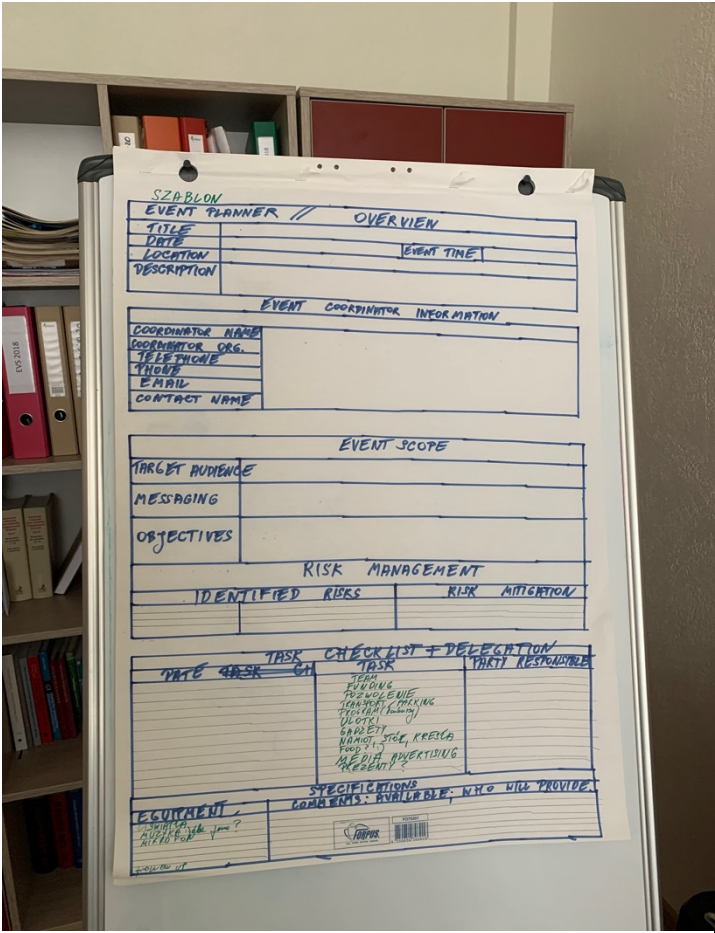 SZABLON
EVENT PLANNER // OVERVIEW
TITLE
DATE
LOCATION EVENT TIME
DESCRIPTION
EVENT COORDINATOR INFORMATION
COORDINATOR NAME
COORDINATOR ORG.
TELEPHONE
PHONE
EMAIL
CONTACT NAME
EVENT SCOPE
TARGET AUDIENCE
MESSAGING
OBJECTIVES
RISK MANAGEMENT
IDENTIFIED RISKS RISK MITIGATION
TASK CHECKLIST + DELEGATION
DATE TASK PARTY RESPONSIBLE
TEAM
FUNDING
POZWOLENIE
TRANSPORT / PARKING
PROGRAM
ULOTKI
GADŻETY
NAMIOT, STÓŁ, KRESŁA
FOOD ?
MEDIA ADVERTISING
PREZENTY ?
SPECIFICATIONS
EQUIPMENT COMMENTS: AVAILABLE; WHO WILL PROVIDE.
ŚWIATŁA
MUZYKA ?
MIKROFON
FORPUS
FOLLOW UP
EVS 2018